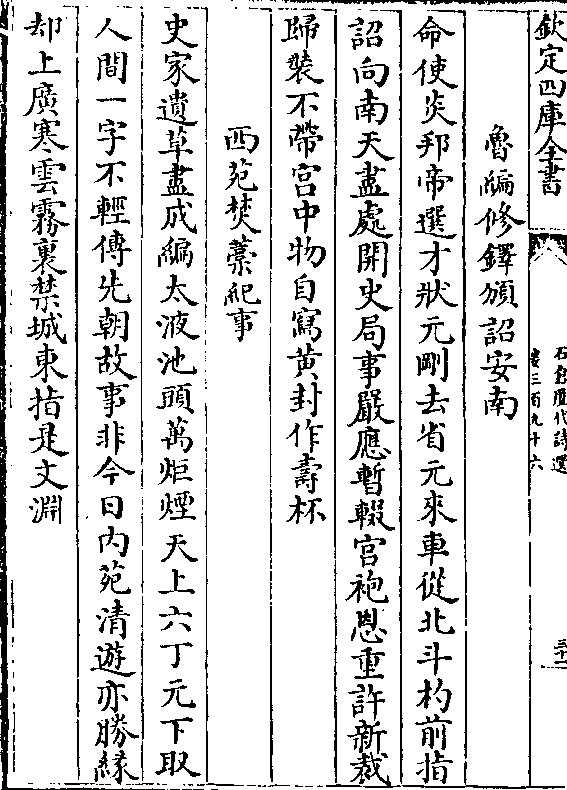 欽定四庫全書
石倉歷代詩選
卷三百九十六
三十一
魯編修鐸頒詔安南
命使炎邦帝選才狀元剛去省元來車從北斗杓前指
詔向南天盡處開史局事嚴應暫輟宫袍恩重許新裁
歸裝不帶宫中物自寫黄封作壽杯
西苑焚藁紀事
史家遺草盡成編太液池頭萬炬煙天上六丁元下取
人間一字不輕傳先朝故事非今日内苑清遊亦勝緣
却上廣寒雲霧裏禁城東指是文淵